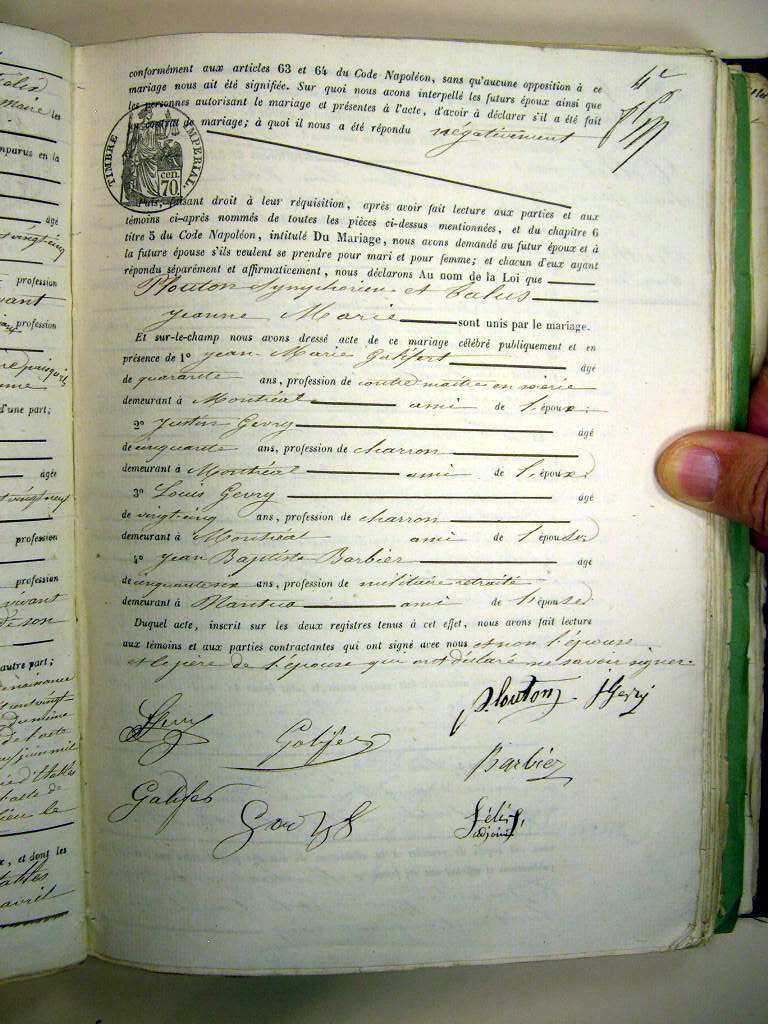 conformément aux articles 63 et 64 du Code Napoléon, sans qu'aucune opposition à ce
mariage nous ait été signifiée. Sur quoi nous avons interpellé les futurs époux ainsi que
les personnes autorisant le mariage et présentes à l'acte, d'avoir à déclarer s'il a été fait
un contrat de mariage; à quoi il nous a été répondu négativement
TIMBRE IMPERIAL
70 cen.
Puis, faisant droit à leur réquisition, après avoir fait lecture aux parties et aux
témoins ci-après nommés de toutes les pièces ci-dessus mentionnées, et du chapitre 6
titre 5 du Code Napoléon, intitulé Du Mariage, nous avons demandé au futur époux et à
la future épouse s'ils veulent se prendre pour mari et pour femme; et chacun d'eux ayant
répondu séparément et affirmaticement, nous déclarons Au nom de la Loi que
Plouton Symphorien et
Jeanne Marie sont unis par le mariage.
Et sur-le-champ nous avons dressé acte de ce mariage célébré publiquement et en
présence de 1° Jean Marie Galifert âgé
de quarante ans, profession de contre maître en soierie
demeurant à Montréal ami de l'époux
2° Justin Gevry âgé
de cinquante ans, profession de charron
demeurant à Montréal ami de l'époux
3° Louis Gevry âgé
de vingt cinq ans, profession de charron
demeurant à Montréal ami de l'épouse
4° Jean Baptiste Barbier âgé
de cinquante six ans, profession de militaire retraité
demeurant à Nantua ami de l'épouse
Duquel acte, inscrit sur les deux registres tenus à cet effet, nous avons fait lecture
aux témoins et aux parties contractantes qui ont signé avec nous et non l'épouse
et le père de l'épouse qui ont déclaré ne savoir signer.
Plouton JGevry
LGevry Galifer
Barbier
Galifer
adjoint